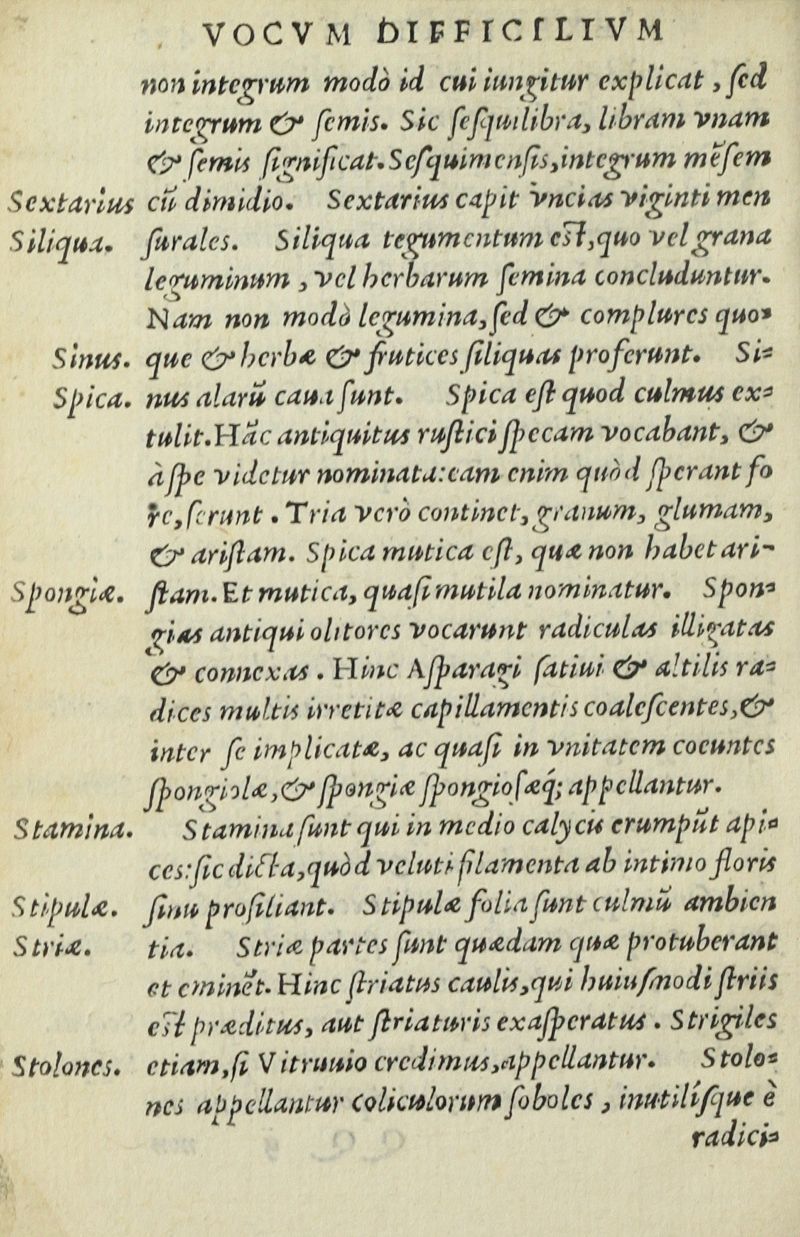 VOCVM DIFFICILIVM
non integrum modò id cui iungitur explicat, ſed
integrum & ſemis. Sic ſeſquilibra, libram vnam
& ſemis ſignificat. Seſquimenſis, integrum mẽſem
Sextarius cũ dimidio. Sextarius capit vncias viginti men
Siliqua. ſurales. Siliqua tegumentum eſt, quo vel grana
leguminum, vel herbarum ſemina concluduntur.
Nam non modò legumina, ſed & complures quo-
Sinus. que & herbæ & frutices ſiliquas proferunt. Si-
Spica. nus alarũ caua ſunt. Spica eſt quod culmus ex-
tulit. Hãc antiquitus ruſtici ſpecam vocabant, &
à ſpe videtur nominata: eam enim quòd ſperant fo
re, ſerunt. Tria verò continet, granum, glumam,
& ariſtam. Spica mutica eſt, quæ non habet ari-
Spongiæ. ſtam. Et mutica, quaſi mutila nominatur. Spon-
gias antiqui olitores vocarunt radiculas illigatas
& connexas. Hinc Aſparagi ſatiui & altilis ra-
dices multis irretitæ capillamentis coaleſcentes, &
inter ſe implicatæ, ac quaſi in vnitatem coeuntes
ſpongiolæ, & ſpongiæ ſpongioſæq; appellantur.
Stamina. Stamina ſunt qui in medio calycis erumpũt api-
ces: ſic dicta, quòd veluti filamenta ab intimo floris
Stipulæ. ſinu proſiliant. Stipulæ folia ſunt culmũ ambien
Striæ. tia. Striæ partes ſunt quædam quæ protuberant
et eminẽt. Hinc ſtriatus caulis, qui huiuſmodi ſtriis
eſt præditus, aut ſtriaturis exaſperatus. Strigiles
Stolones. etiam, ſi Vitruuio credimus, appellantur. Stolo-
nes appellantur coliculorum ſoboles, inutiliſque è
radici-